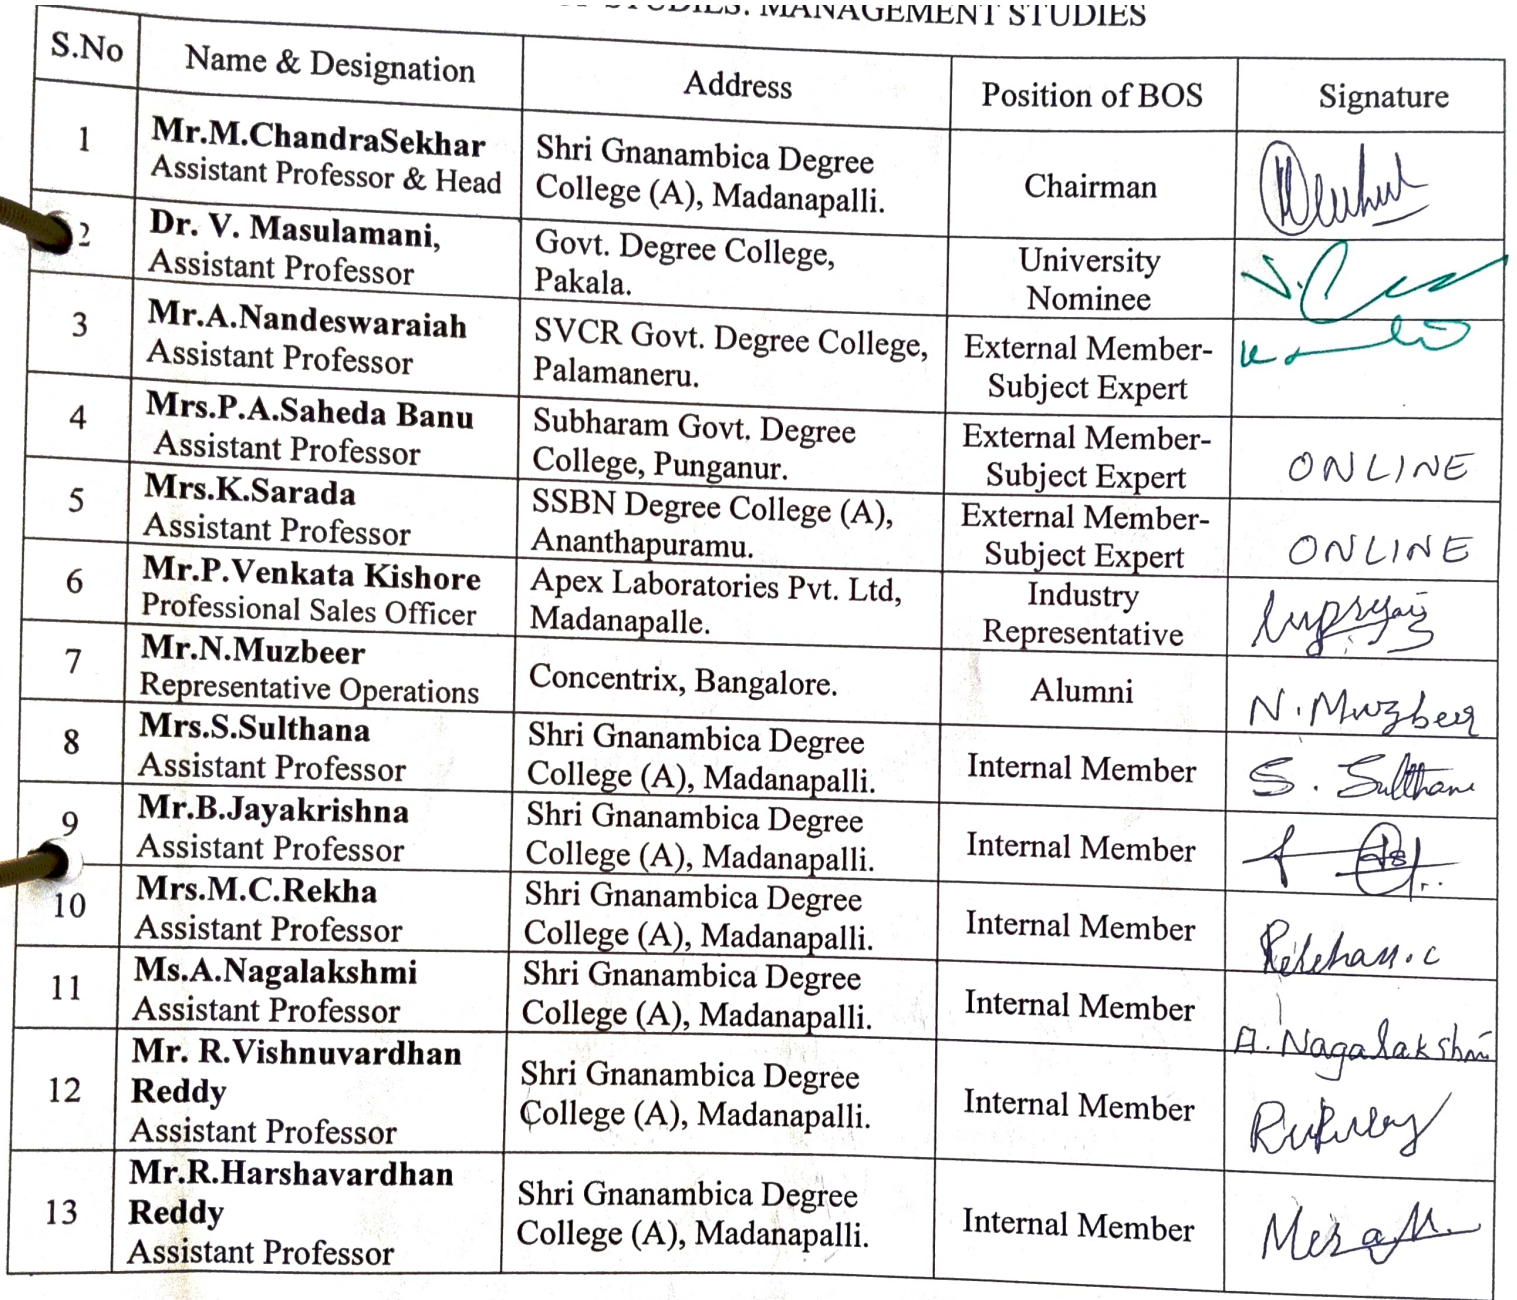 STUDIES: MANAGEMENT STUDIES
S.No Name & Designation Address Position of BOS Signature
1 Mr.M.ChandraSekhar
Assistant Professor & Head
Shri Gnanambica Degree
College (A), Madanapalli.
Chairman
2 Dr. V. Masulamani,
Assistant Professor
Govt. Degree College,
Pakala.
University
Nominee
3 Mr.A.Nandeswaraiah
Assistant Professor
SVCR Govt. Degree College,
Palamaneru.
External Member-
Subject Expert
4 Mrs.P.A.Saheda Banu
Assistant Professor
Subharam Govt. Degree
College, Punganur.
External Member-
Subject Expert
ONLINE
5 Mrs.K.Sarada
Assistant Professor
SSBN Degree College (A),
Ananthapuramu.
External Member-
Subject Expert
ONLINE
6 Mr.P.Venkata Kishore
Professional Sales Officer
Apex Laboratories Pvt. Ltd,
Madanapalle.
Industry
Representative
7 Mr.N.Muzbeer
Representative Operations
Concentrix, Bangalore.
Alumni
N. Muzbeer
8 Mrs.S.Sulthana
Assistant Professor
Shri Gnanambica Degree
College (A), Madanapalli.
Internal Member
S. Sulthana
9 Mr.B.Jayakrishna
Assistant Professor
Shri Gnanambica Degree
College (A), Madanapalli.
Internal Member
10 Mrs.M.C.Rekha
Assistant Professor
Shri Gnanambica Degree
College (A), Madanapalli.
Internal Member
11 Ms.A.Nagalakshmi
Assistant Professor
Shri Gnanambica Degree
College (A), Madanapalli.
Internal Member
A. Nagalakshmi
12 Mr. R.Vishnuvardhan
Reddy
Assistant Professor
Shri Gnanambica Degree
College (A), Madanapalli.
Internal Member
13 Mr.R.Harshavardhan
Reddy
Assistant Professor
Shri Gnanambica Degree
College (A), Madanapalli.
Internal Member